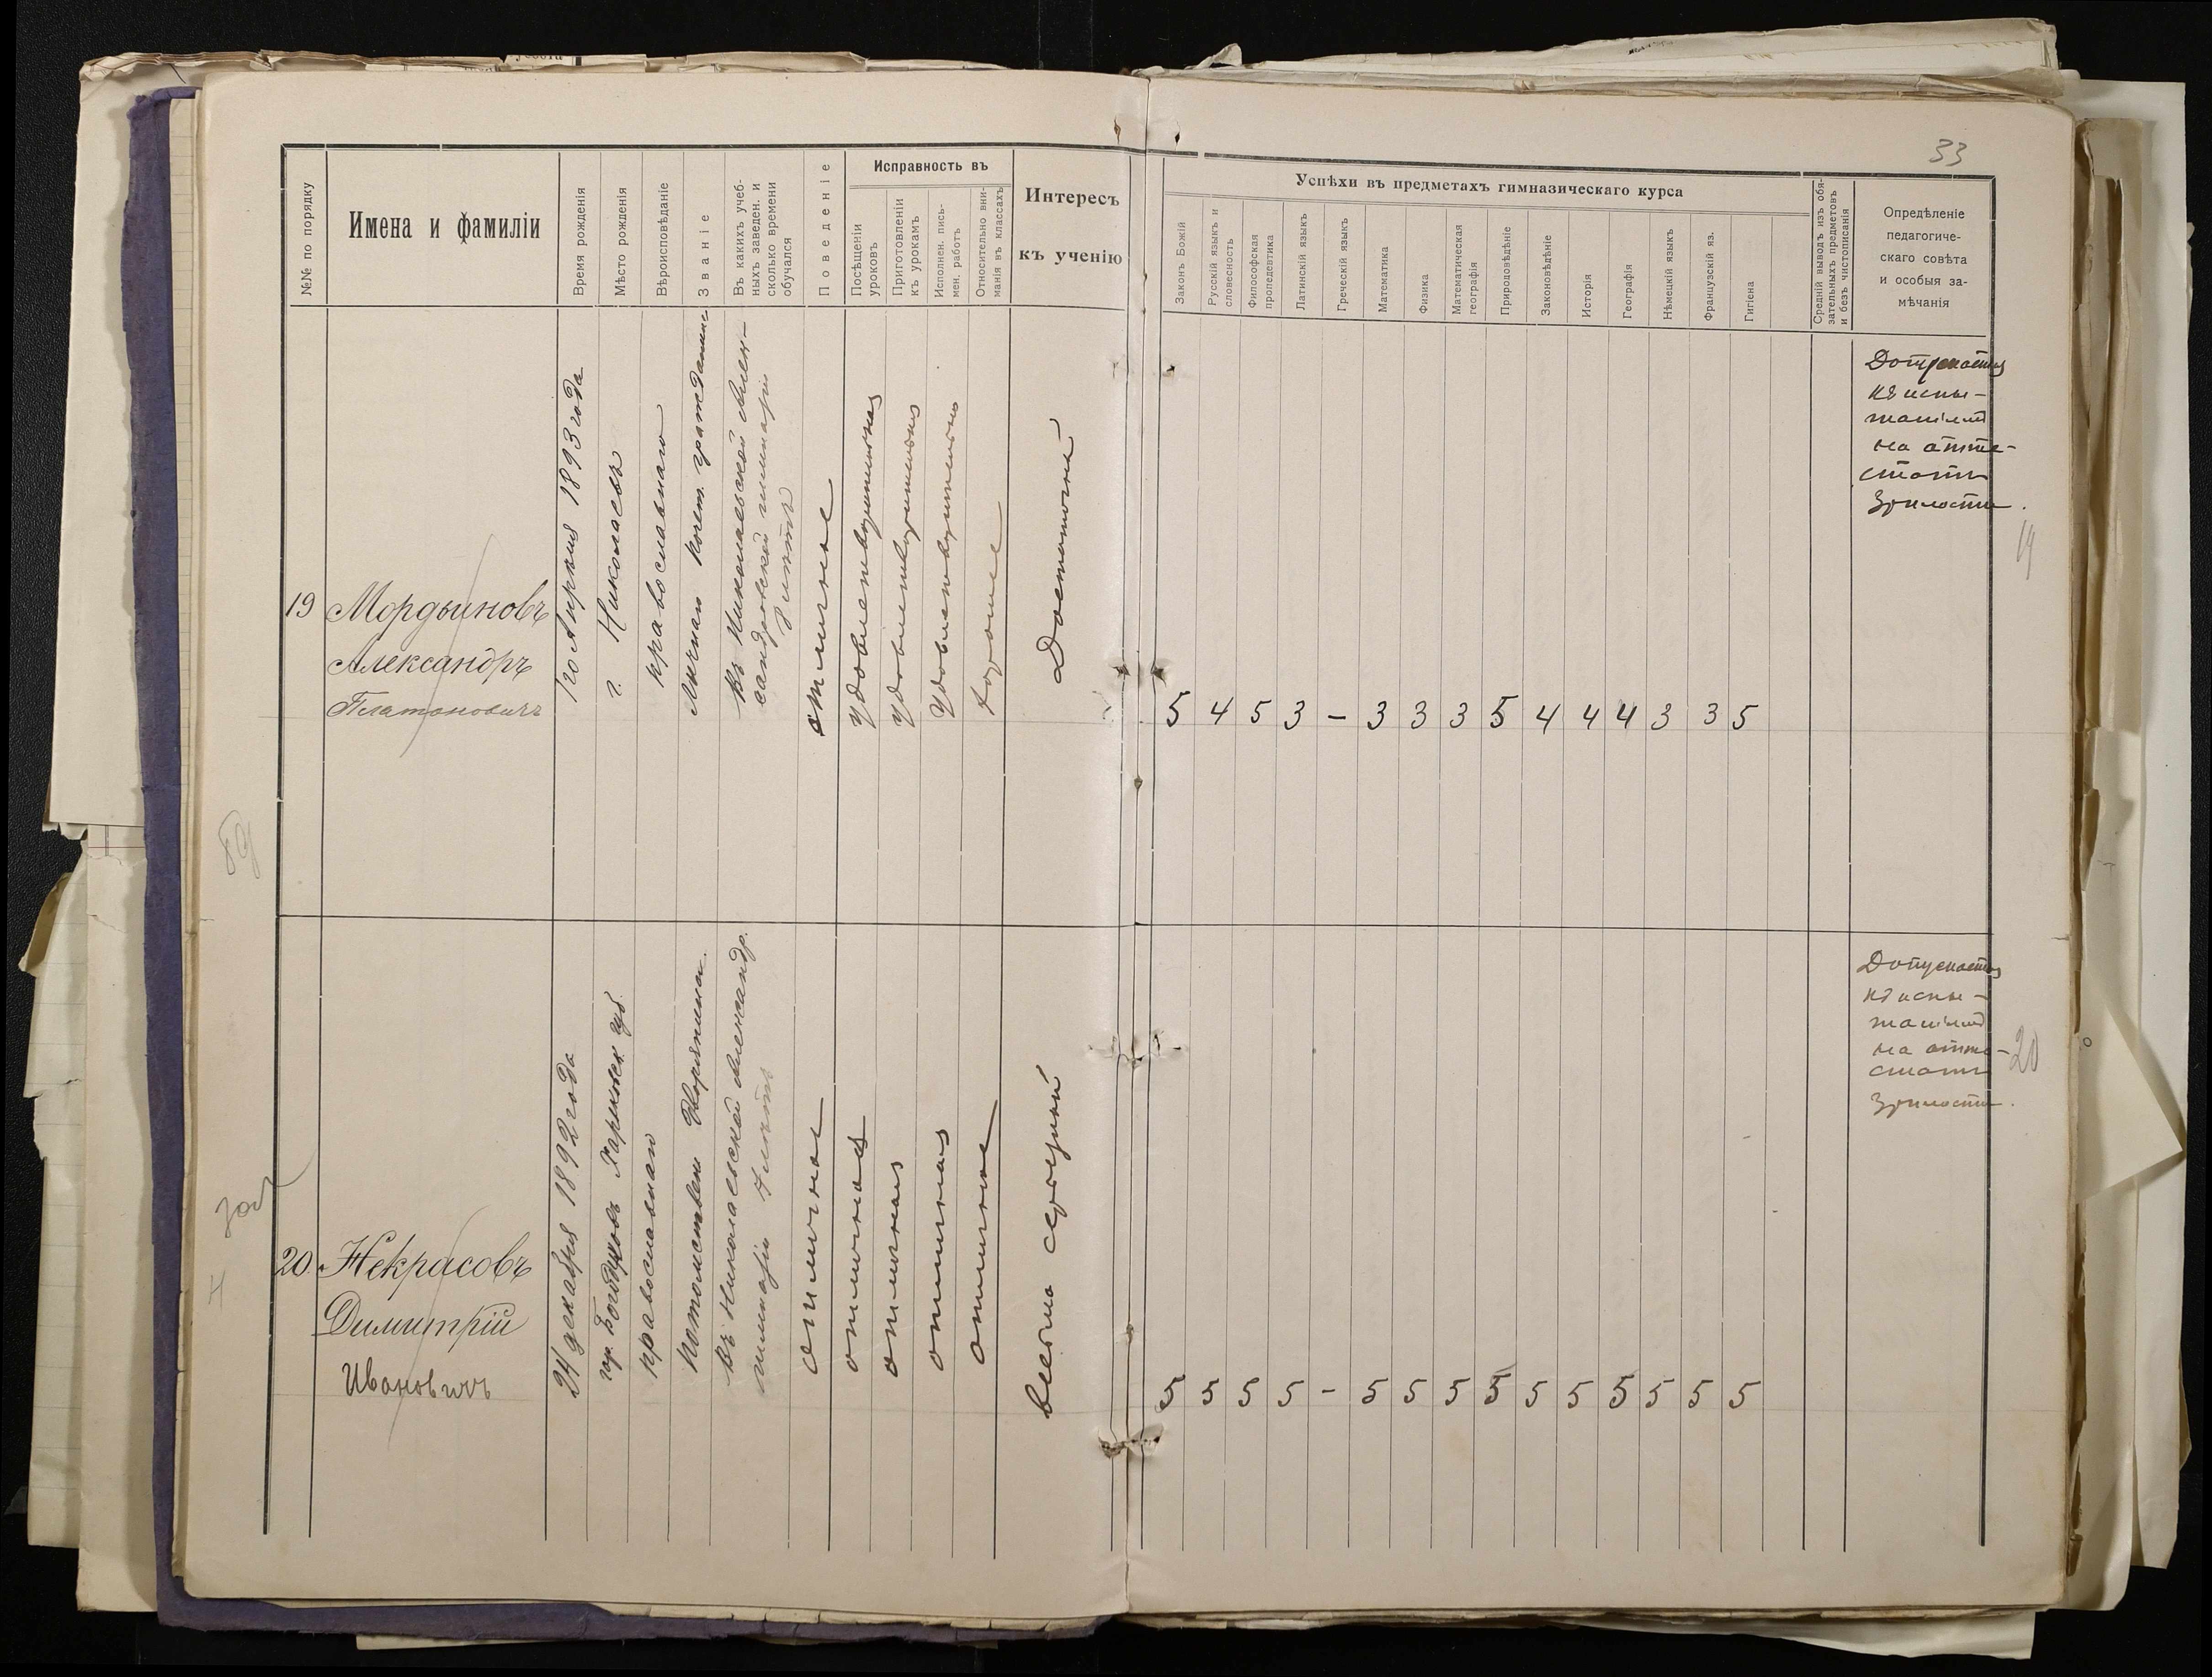 33
№№ по порядку
Имена и фамиліи
Время рожденія
Мѣсто рожденія
Вѣроисповѣданіе
Званіе
Въ какихъ учеб-
ныхъ заведен. и
сколько времени
обучался
Поведеніе
Исправность въ
Посѣщеніи
уроковъ
Приготовленіи
къ урокамъ
Исполнен. пись-
мен. работъ
Относительно вни-
манія въ классахъ
Интересъ
къ ученію
Успѣхи въ предметахъ гимназическаго курса
Законъ Божій
Русскій языкъ и
словесность
Философская
пропедевтика
Латинскій языкъ
Греческій языкъ
Математика
Физика
Математическая
географія
Природовѣдѣніе
Законовѣдѣніе
Исторія
Географія
Нѣмецкій языкъ
Французскій яз.
Гигіена
Средній выводъ изъ обя-
зательныхъ предметовъ
и безъ чистописанія
Опредѣленіе
педагогиче-
скаго совѣта
и особыя за-
мѣчанія
19
Мордвиновъ
Александръ
Платоновичъ
20 Апрѣля 1893 года
г. Николаевъ
православнаго
Личнаго почетн. гражданина
Въ Николаевской Алек-
сандровской гимназіи
лѣтъ
отличное
удовлетворительная
удовлетворительная
удовлетворительно
хорошее
Достаточный
5 4 5 3 – 3 3 3 5 4 4 4 3 3 5
Допускается
къ испы-
танію
на атте-
статъ
зрѣлости.
19
20.
Некрасовъ
Димитрій
Ивановичъ
24 декабря 1892 года
гор. Богодуховъ Харьковск. губ.
православнаго
Потомственный дворянинъ
Въ Николаевской Александр.
гимназіи лѣтъ
отличное
отличная
отличная
отличная
отличное
весьма серьезный
5 5 5 5 – 5 5 5 5 5 5 5 5 5 5
Допускается
къ испы-
танію
на атте-
статъ
зрѣлости.
20